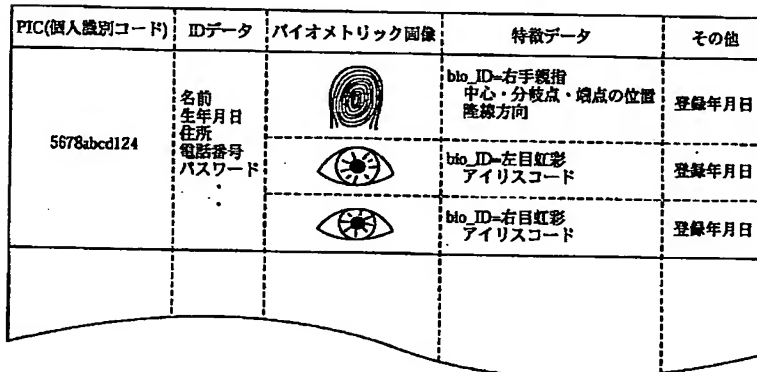 PIC(個人識別コード)
IDデータ
バイオメトリック画像
特徴データ
その他
5678abcd124
名前
生年月日
住所
電話番号
パスワード
・
・
bio_ID=右手親指
中心・分岐点・端点の位置
隆線方向
登録年月日
bio_ID=左目虹彩
アイリスコード
登録年月日
bio_ID=右目虹彩
アイリスコード
登録年月日